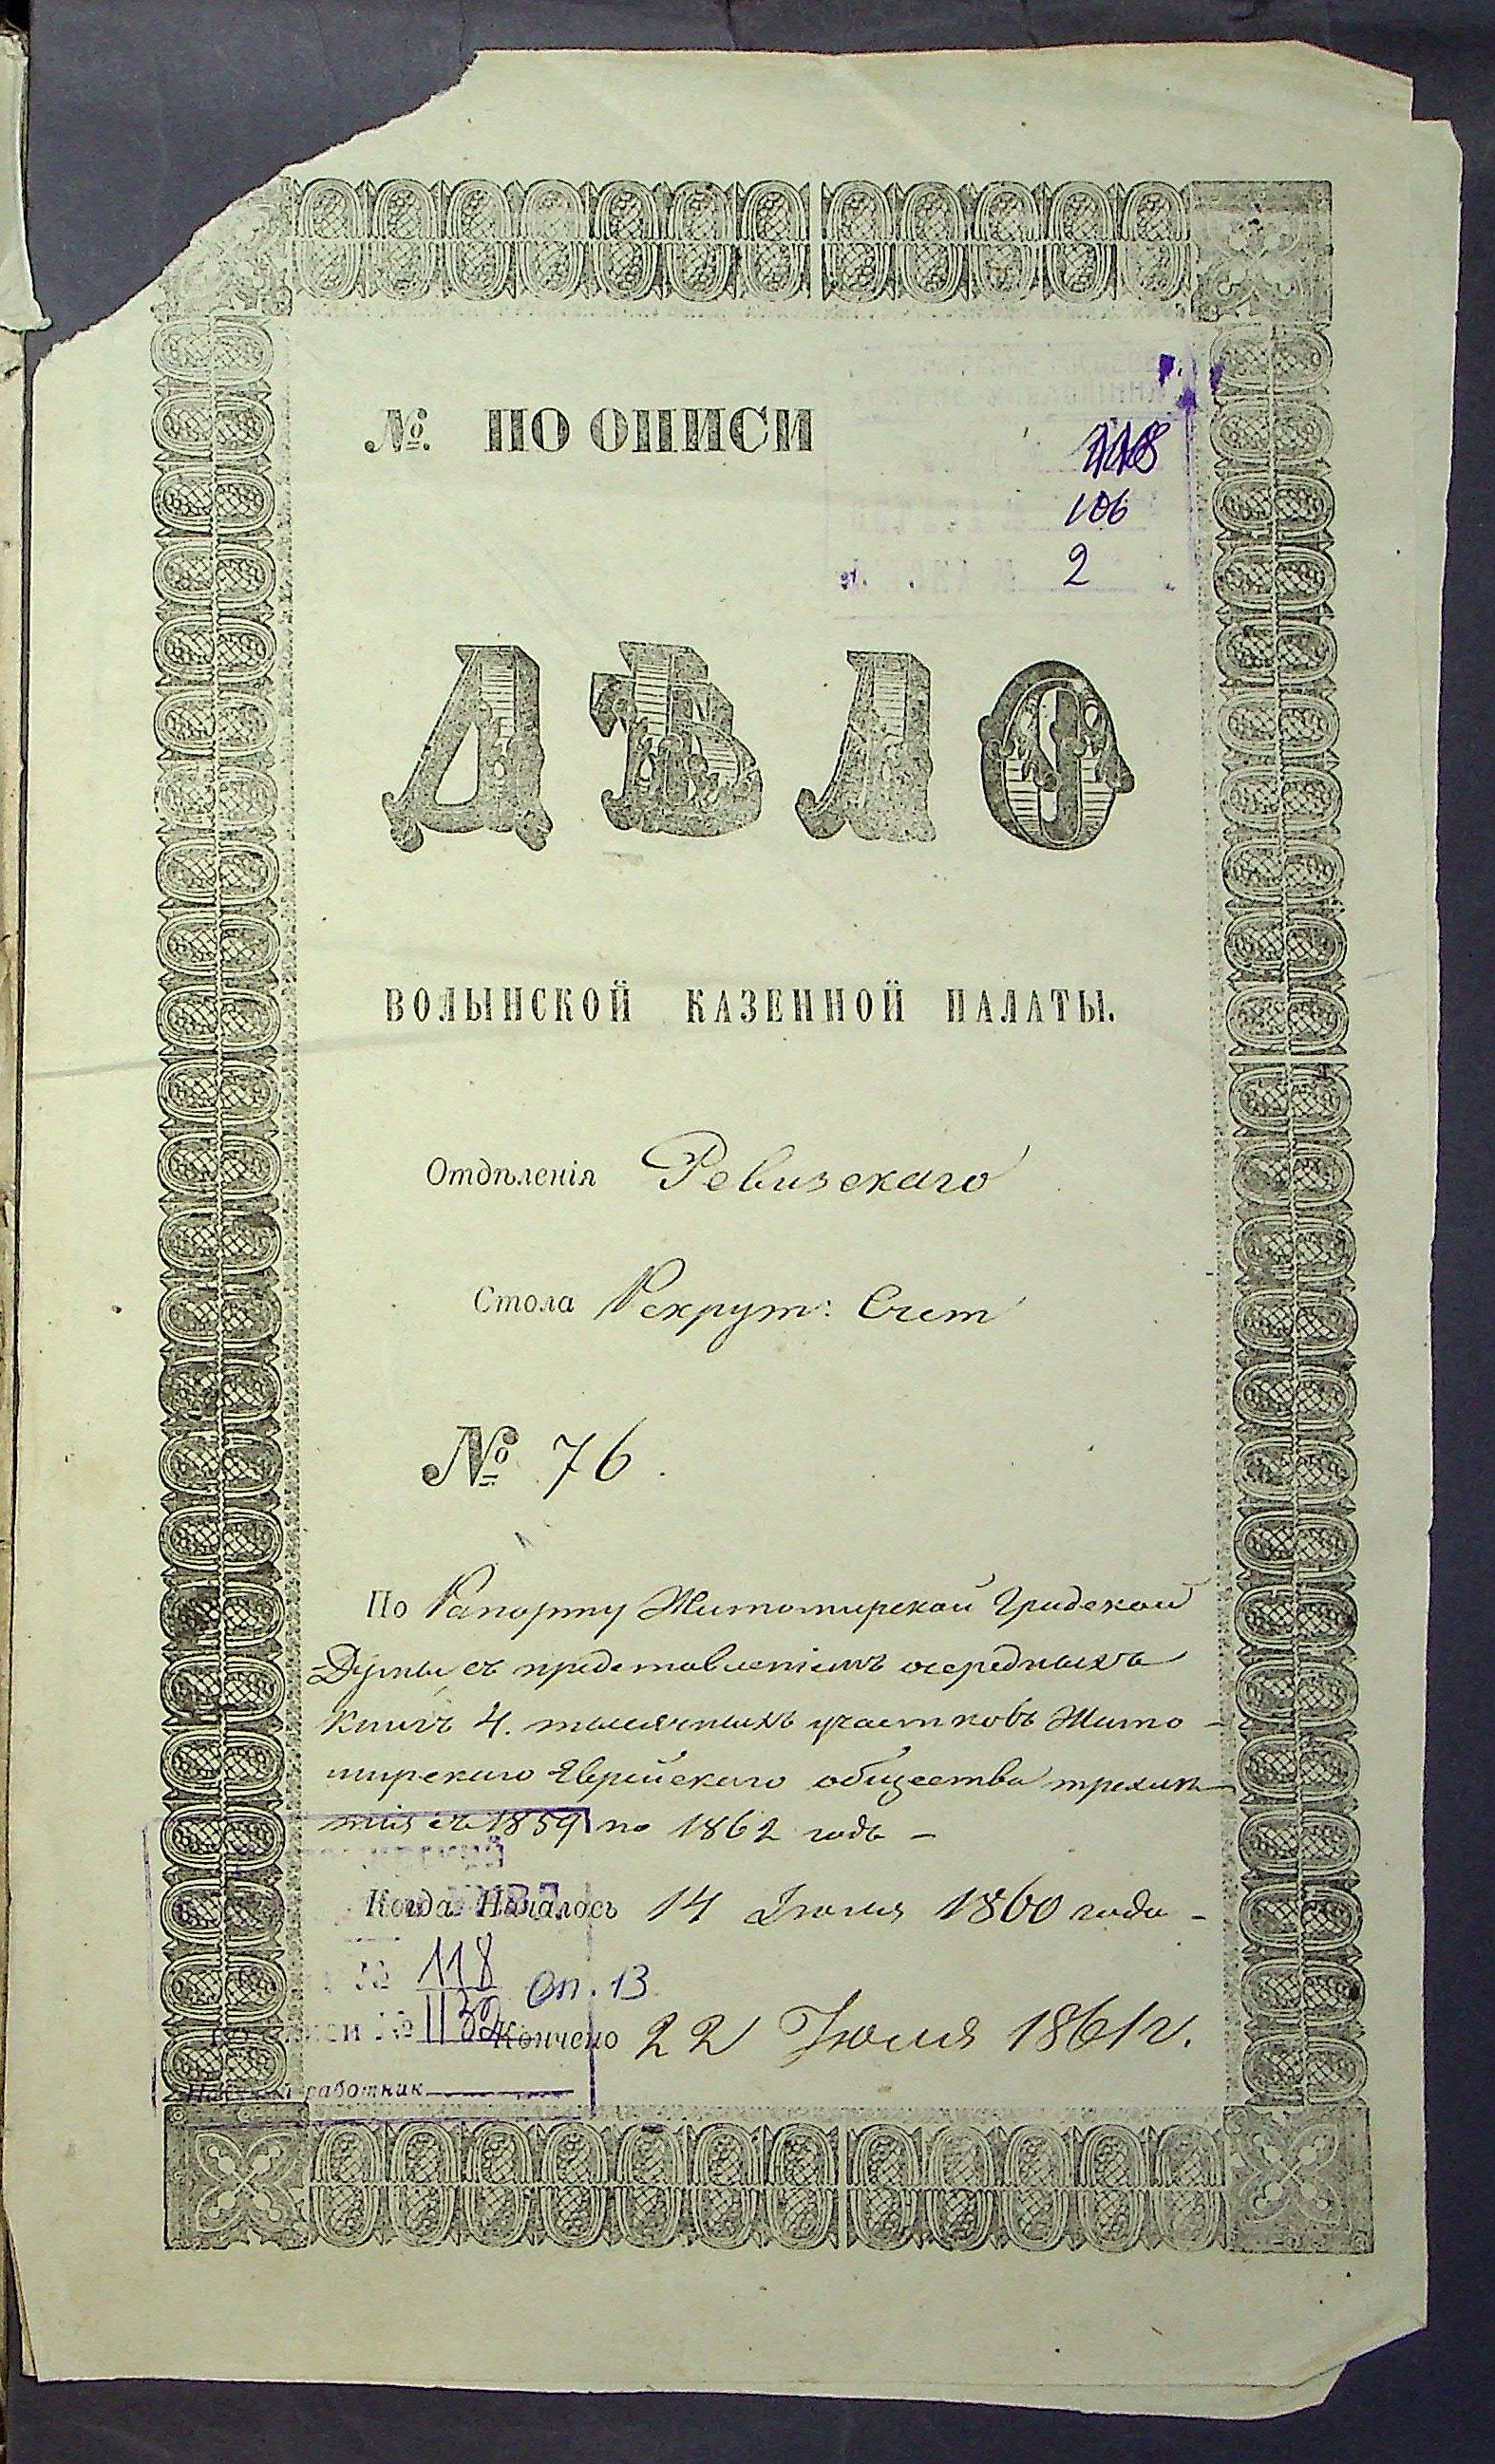 №. ПО ОПИСИ
118
106
2
ДѢЛО
ВОЛЫНСКОЙ КАЗЕННОЙ ПАЛАТЫ.
Отдѣленія Ревизскаго
Стола Рекрут: Счет
№ 76.
По Рапорту Житомирской Градской
Думы съ представленіемъ очередныхъ
книгъ 4. тысячныхъ участковъ Жито-
мирскаго Еврейскаго общества трехлѣ-
тія съ 1859 по 1862 годъ -
Когда Началось 14 Іюля 1860 года -
№ 118 оп. 13
описи № 1132
Кончено 22 Іюля 1861 г.
работник